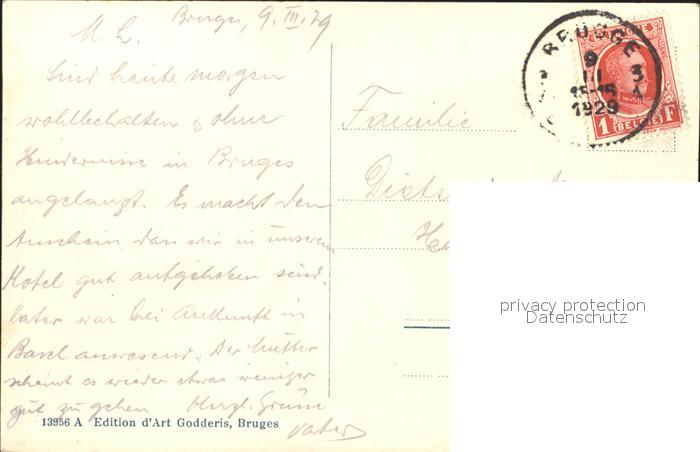 Bruges, 9. III. 29
M. L.
Sind heute morgen
wohlbehalten & ohne
Hindernisse in Bruges
angelangt. Es macht den
Anschein, dass wir in unserem
Hotel gut aufgehoben sind.
Vater war bei Ankunft in
Basel anwesend. Der Mutter
scheint es wieder etwas weniger
gut zu gehen. Herzl. Grüsse
Vater
13956 A Edition d'Art Godderis, Bruges
BRUGGE
9 3
III
15-16 A
1929
1 F
BELGIË
Familie
privacy protection
Datenschutz